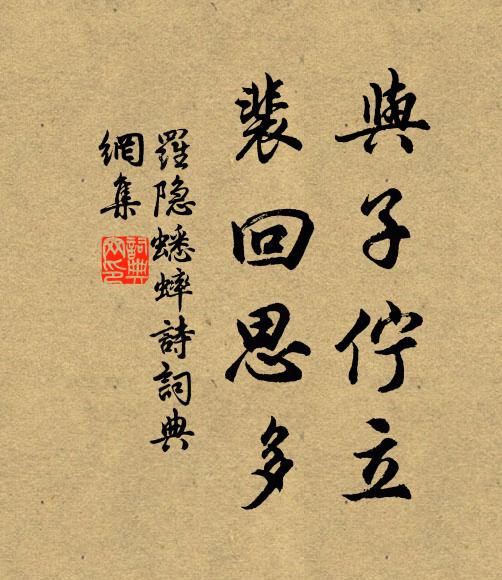 與子佇立
裴回思多
羅隐蟋蟀詩詞典
網集
詞典网印